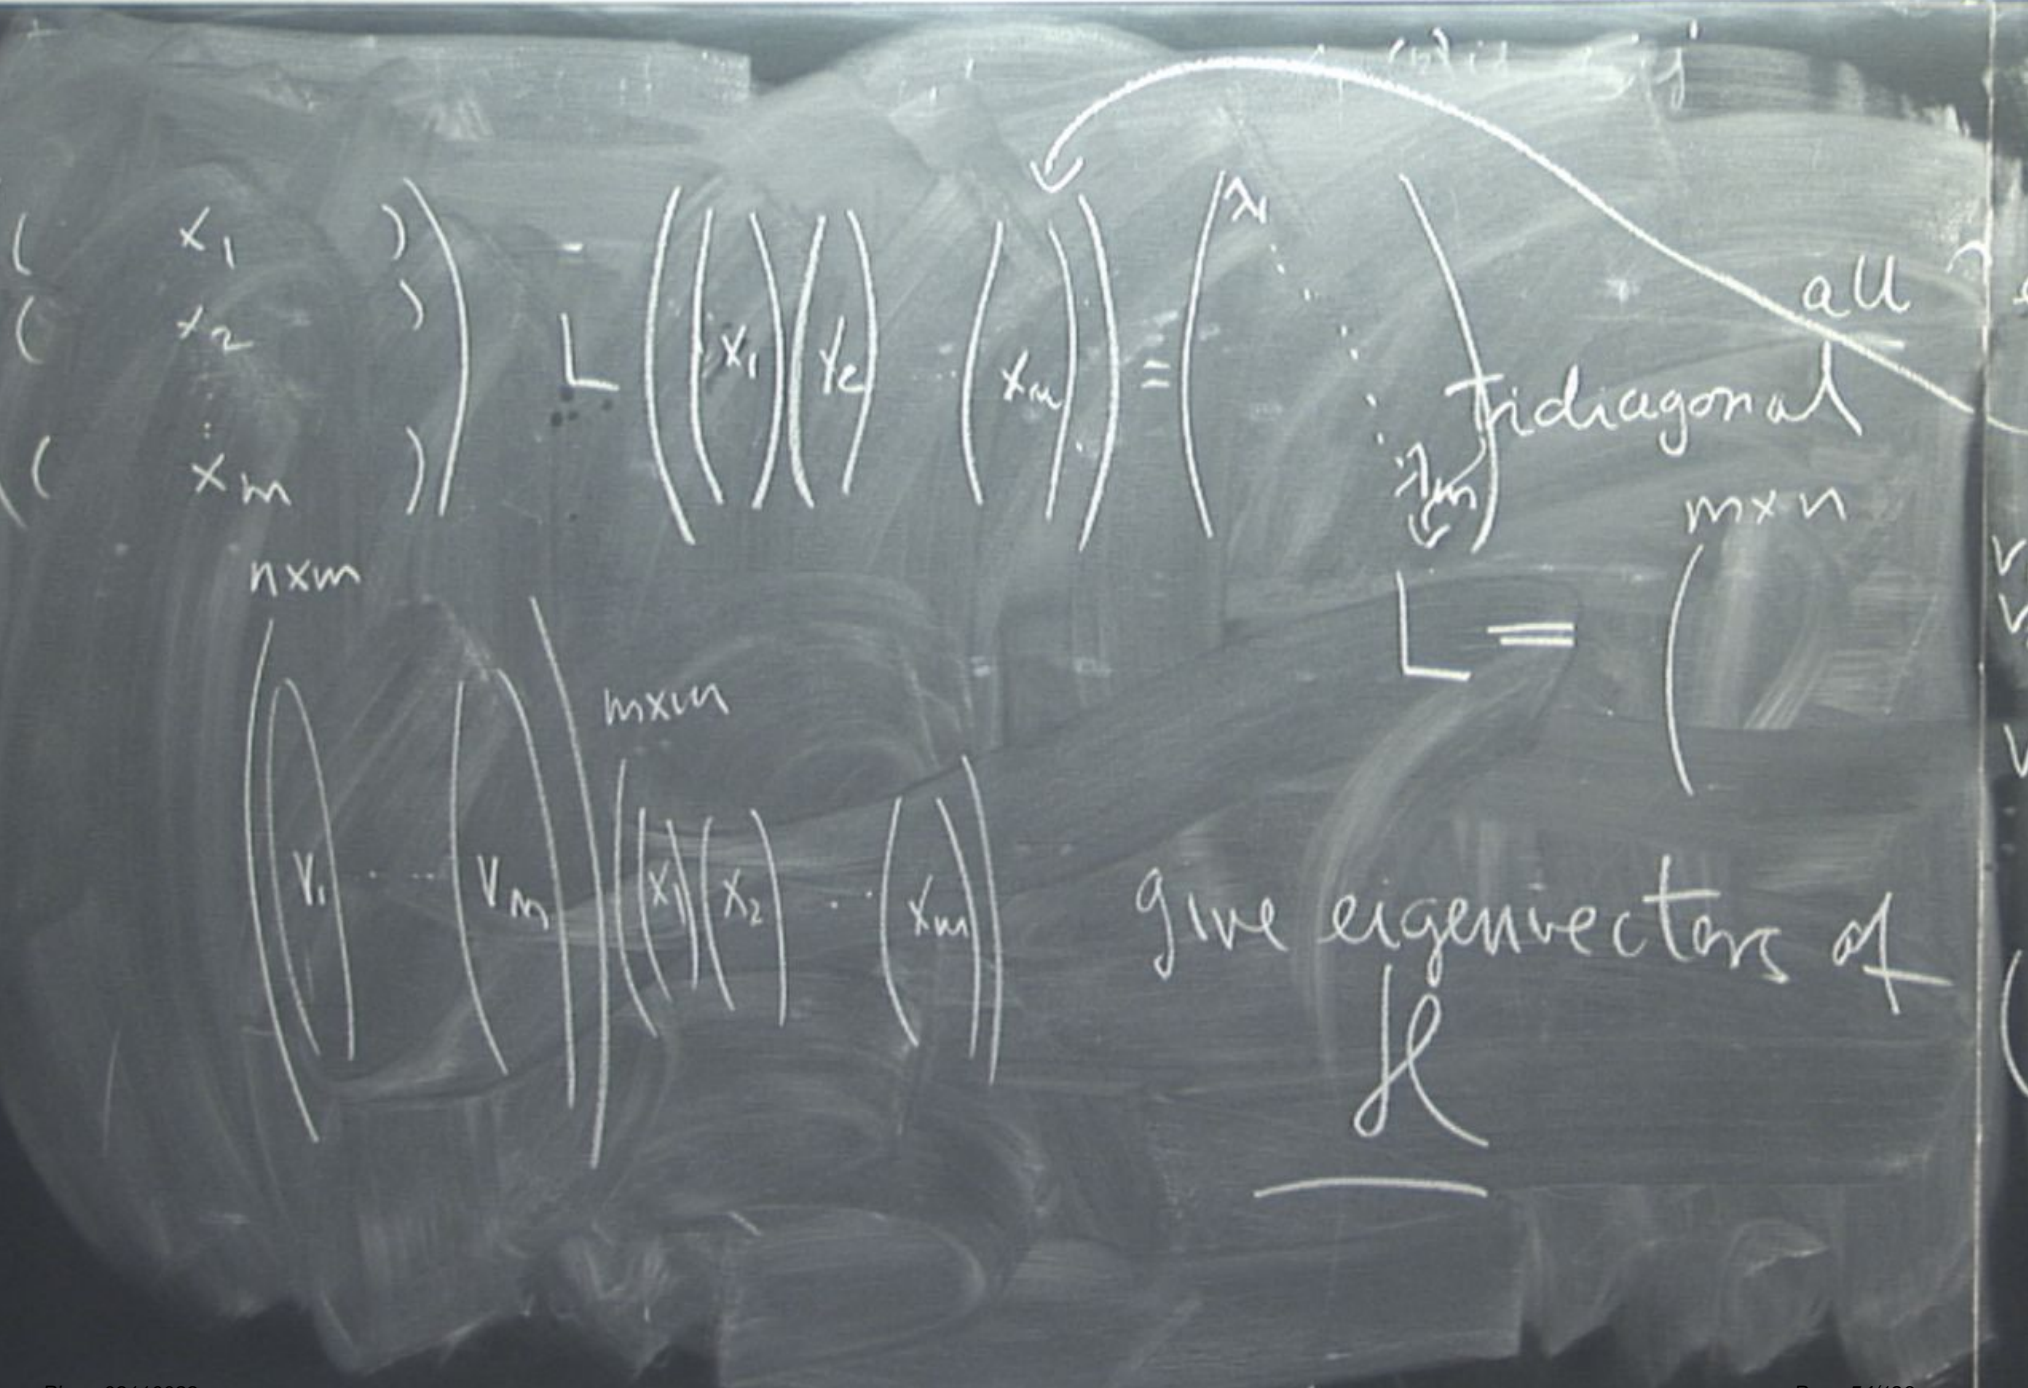 ( x₁ )
( x₂ )
⋮
( x_m )
L ( (x₁) (x₂) … (x_m) ) = ( λ₁ ⋱ λ_m )
all
Tridiagonal
m×n
L = (
n×m
( (v₁) … (v_m) )
m×m
( (x₁) (x₂) … (x_m) )
give eigenvectors of
H